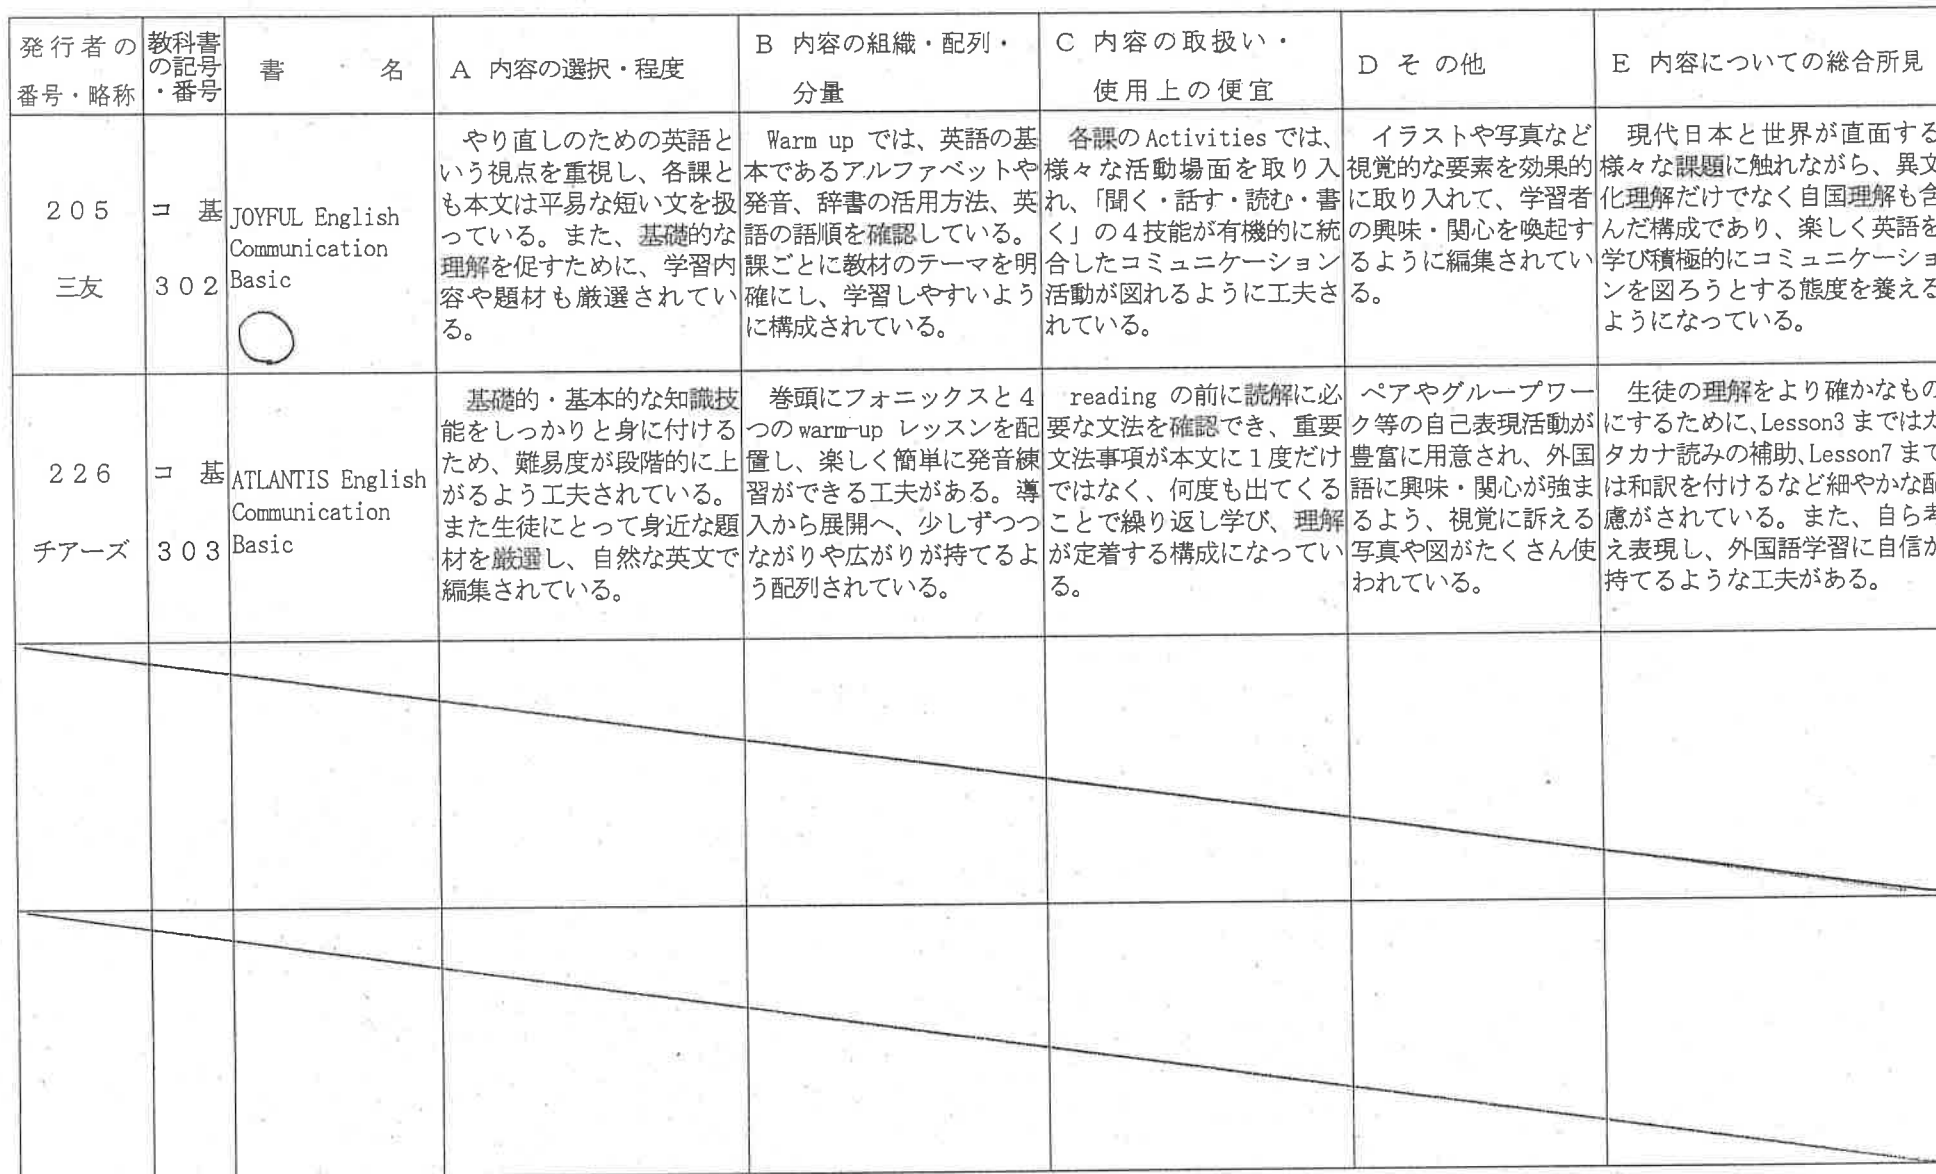 発行者の
番号・略称
教科書
の記号
・番号
書名
A 内容の選択・程度
B 内容の組織・配列・
分量
C 内容の取扱い・
使用上の便宜
D その他
E 内容についての総合所見
205
三友
コ基
302
JOYFUL English
Communication
Basic
やり直しのための英語と
いう視点を重視し、各課と
も本文は平易な短い文を扱
っている。また、基礎的な
理解を促すために、学習内
容や題材も厳選されてい
る。
Warm up では、英語の基
本であるアルファベットや
発音、辞書の活用方法、英
語の語順を確認している。
課ごとに教材のテーマを明
確にし、学習しやすいよう
に構成されている。
各課のActivitiesでは、
様々な活動場面を取り入
れ、「聞く・話す・読む・書
く」の4技能が有機的に統
合したコミュニケーション
活動が図れるように工夫さ
れている。
イラストや写真など
視覚的な要素を効果的
に取り入れて、学習者
の興味・関心を喚起す
るように編集されてい
る。
現代日本と世界が直面する
様々な課題に触れながら、異文
化理解だけでなく自国理解も含
んだ構成であり、楽しく英語を
学び積極的にコミュニケーショ
ンを図ろうとする態度を養える
ようになっている。
226
チアーズ
コ基
303
ATLANTIS English
Communication
Basic
基礎的・基本的な知識技
能をしっかりと身に付ける
ため、難易度が段階的に上
がるよう工夫されている。
また生徒にとって身近な題
材を厳選し、自然な英文で
編集されている。
巻頭にフォニックスと4
つのwarm-up レッスンを配
置し、楽しく簡単に発音練
習ができる工夫がある。導
入から展開へ、少しずつつ
ながりや広がりが持てるよ
う配列されている。
reading の前に読解に必
要な文法を確認でき、重要
文法事項が本文に1度だけ
ではなく、何度も出てくる
ことで繰り返し学び、理解
が定着する構成になってい
る。
ペアやグループワー
ク等の自己表現活動が
豊富に用意され、外国
語に興味・関心が強ま
るよう、視覚に訴える
写真や図がたくさん使
われている。
生徒の理解をより確かなもの
にするために、Lesson3 まではカ
タカナ読みの補助、Lesson7 まで
は和訳を付けるなど細やかな配
慮がされている。また、自ら考
え表現し、外国語学習に自信が
持てるような工夫がある。